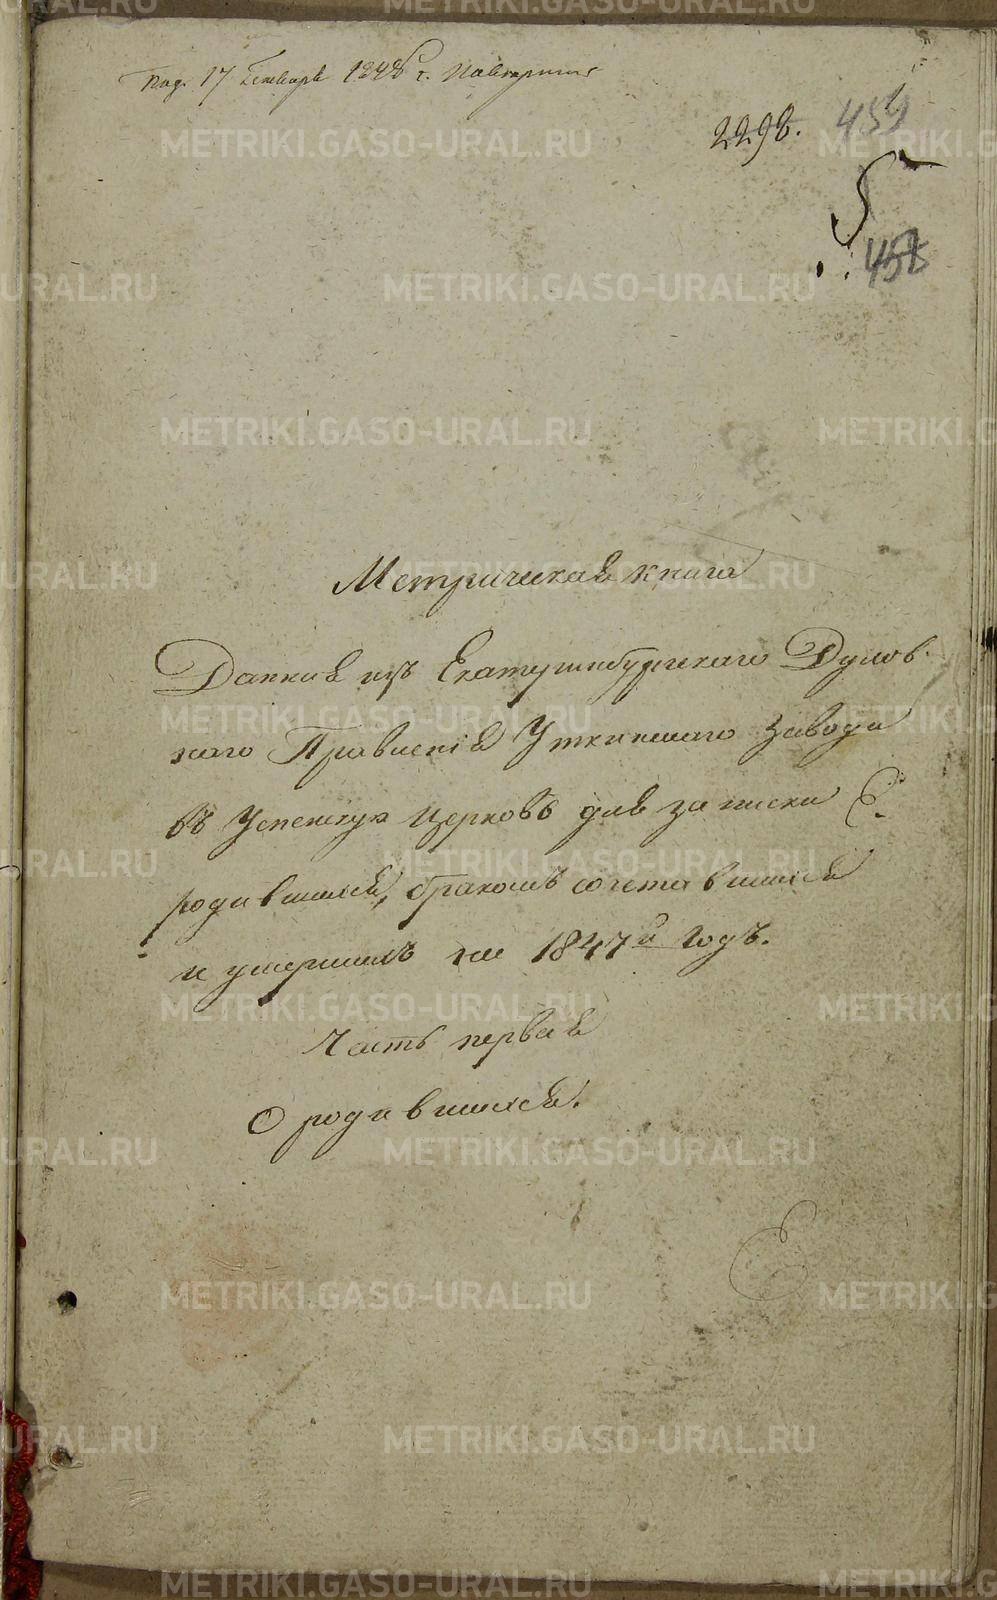 Под. 17 Генваря 1848 г.
2298. 459
5
458
Метрическая книга
Данная изъ Екатеринбургскаго Духов-
наго Правленія Уткинскаго Завода
въ Успенскую Церковь для записки
родившихся, бракомъ сочетавшихся
и умершихъ на 1847й Годъ.
Часть первая
О родившихся.
METRIKI.GASO-URAL.RU